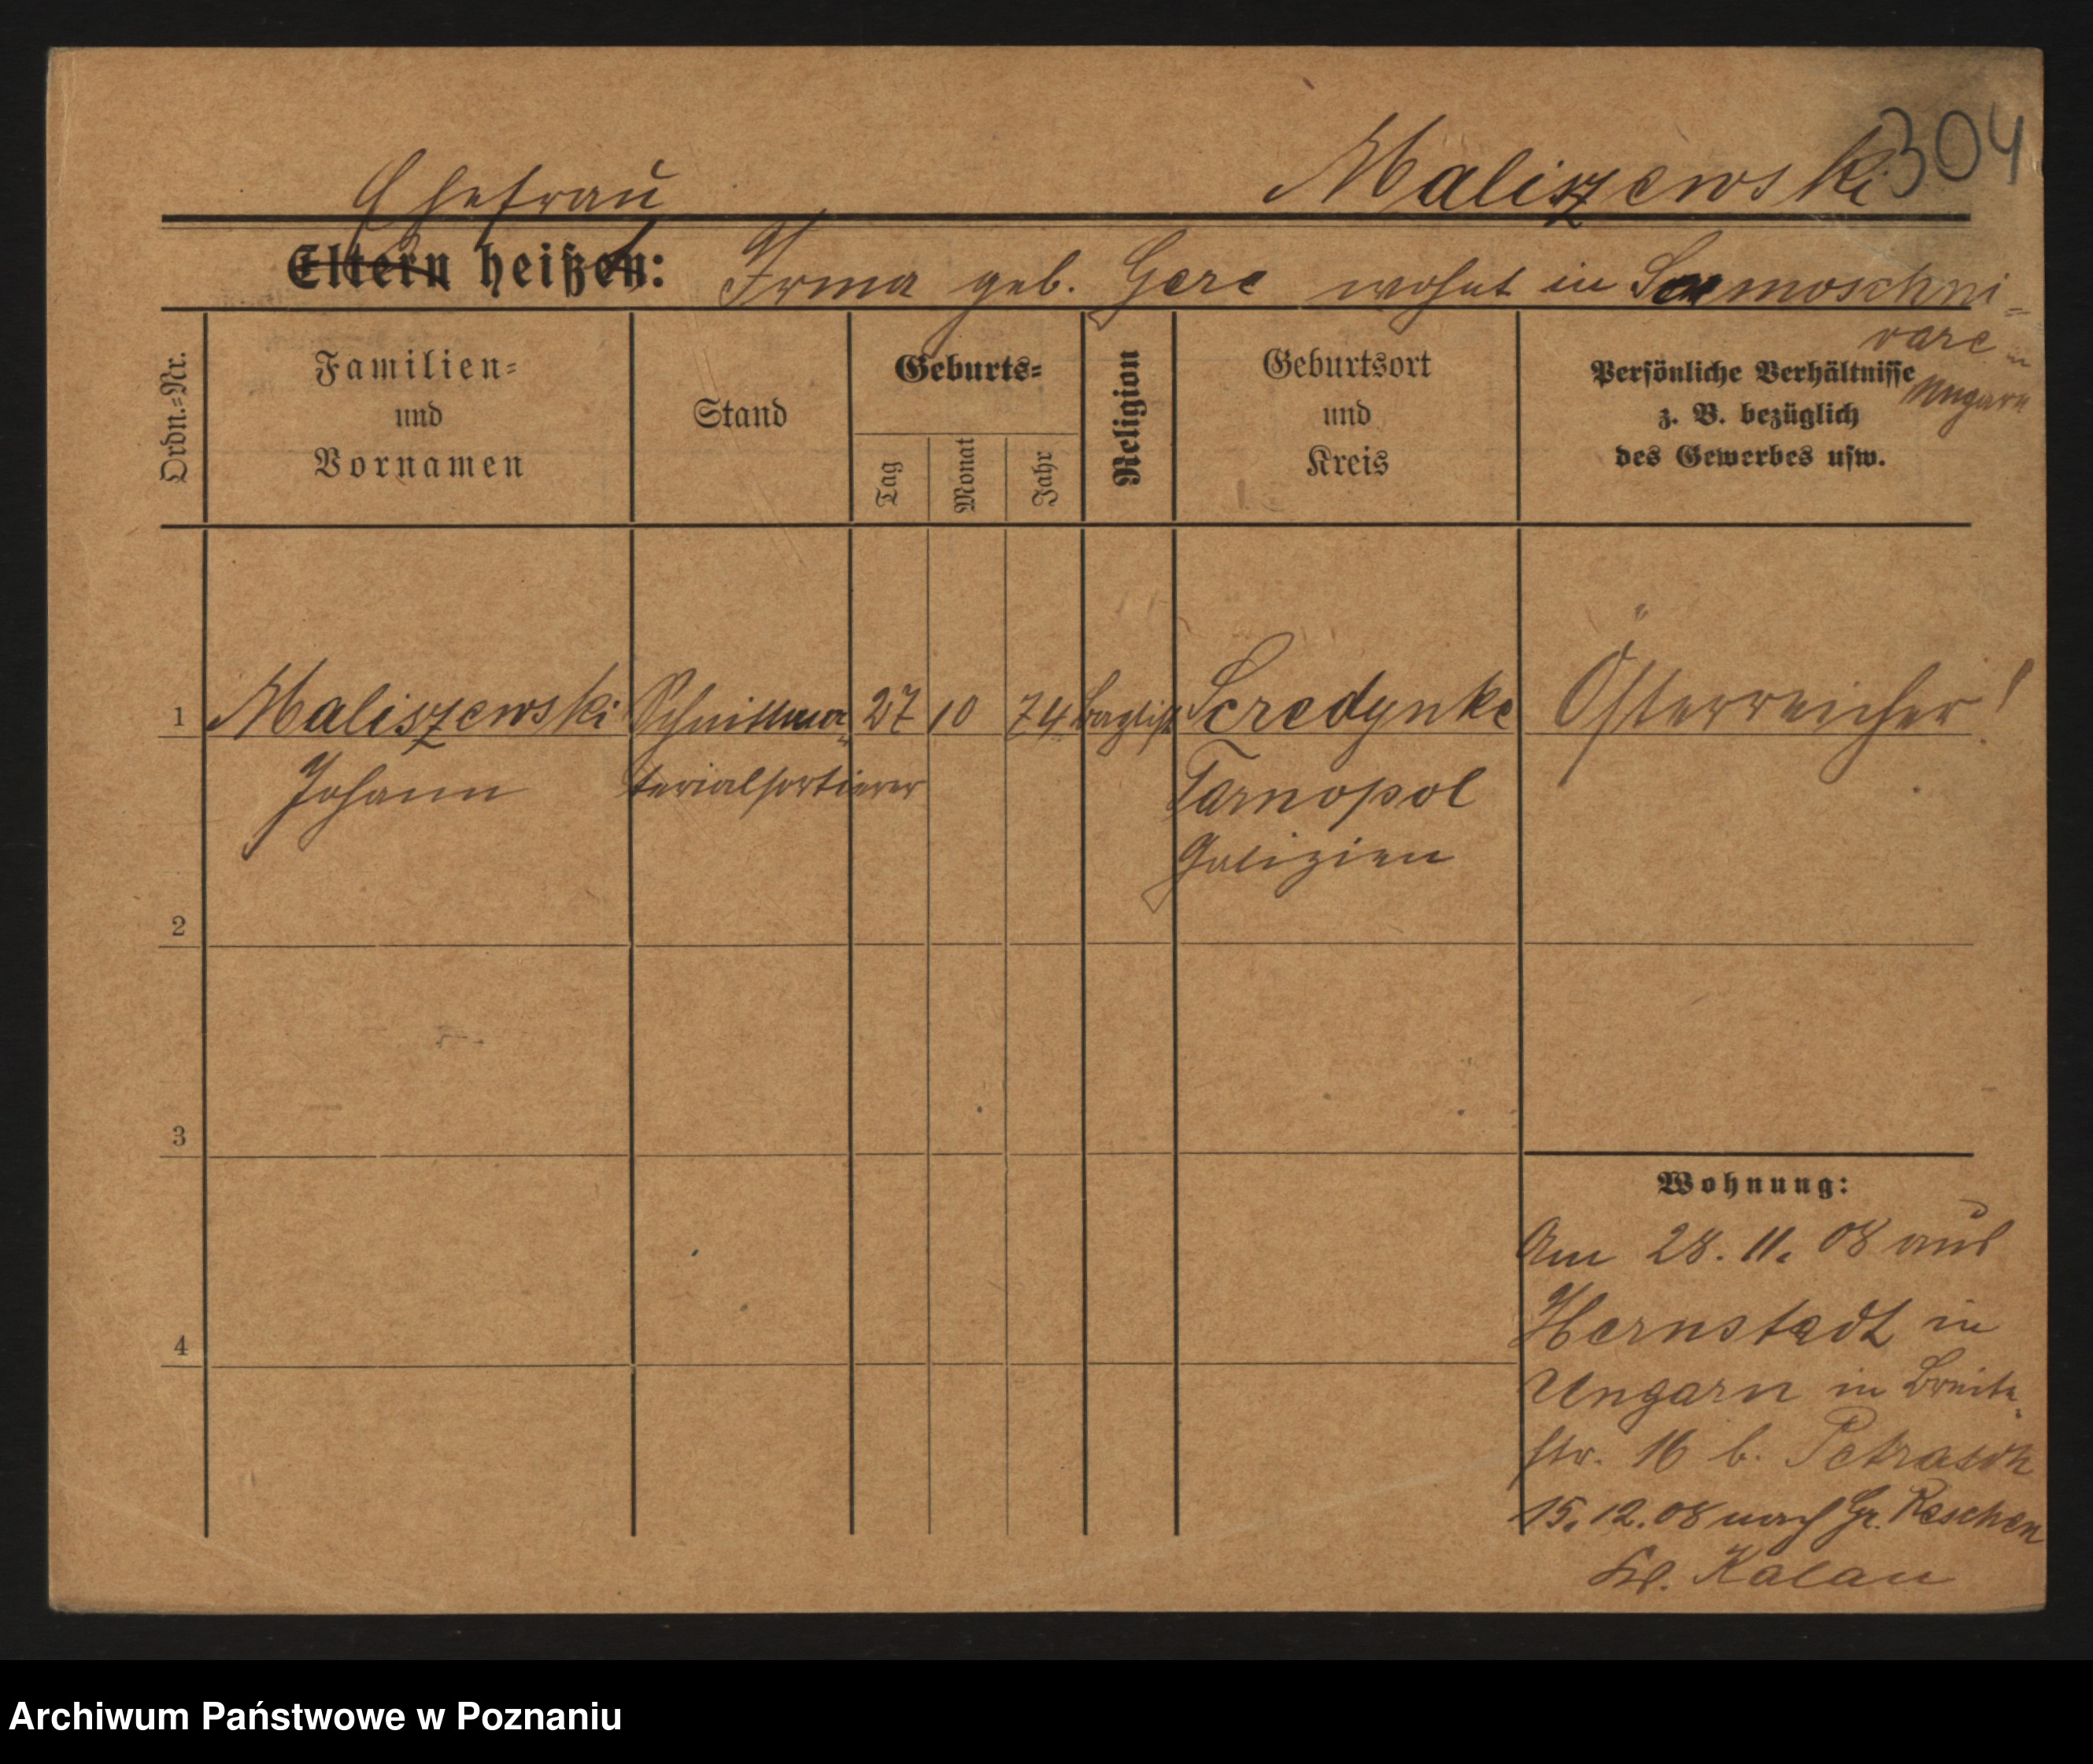 304
Ehefrau Maliszewski
Eltern heißen: Irma geb. Gere wohnt in Samoschni-
vare in
Ungarn
Ordn.-Nr.
Familien-
und
Vornamen
Stand
Geburts-
Tag
Monat
Jahr
Religion
Geburtsort
und
Kreis
Persönliche Verhältnisse
z. B. bezüglich
des Gewerbes usw.
1 Maliszewski Schnittma- 27 10 74 Scredynke Österreicher!
Johann terialsortierer Tarnopol
Galizien
2
3
Wohnung:
Am 28. 11. 08 aus
Hernstadt in
4
Ungarn in Breite-
str. 16 b. Petrasch
15. 12. 08 nach Gr. Reschen
Kr. Kalau
Archiwum Państwowe w Poznaniu